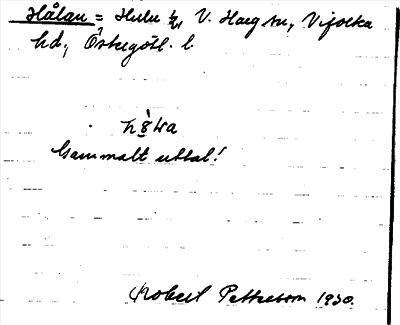 Hålan = Hulu 1/4 V. Harg sn, Vifolka
hd., Östergötl. l.
Gammalt uttal!
Robert Pettersson 1930.